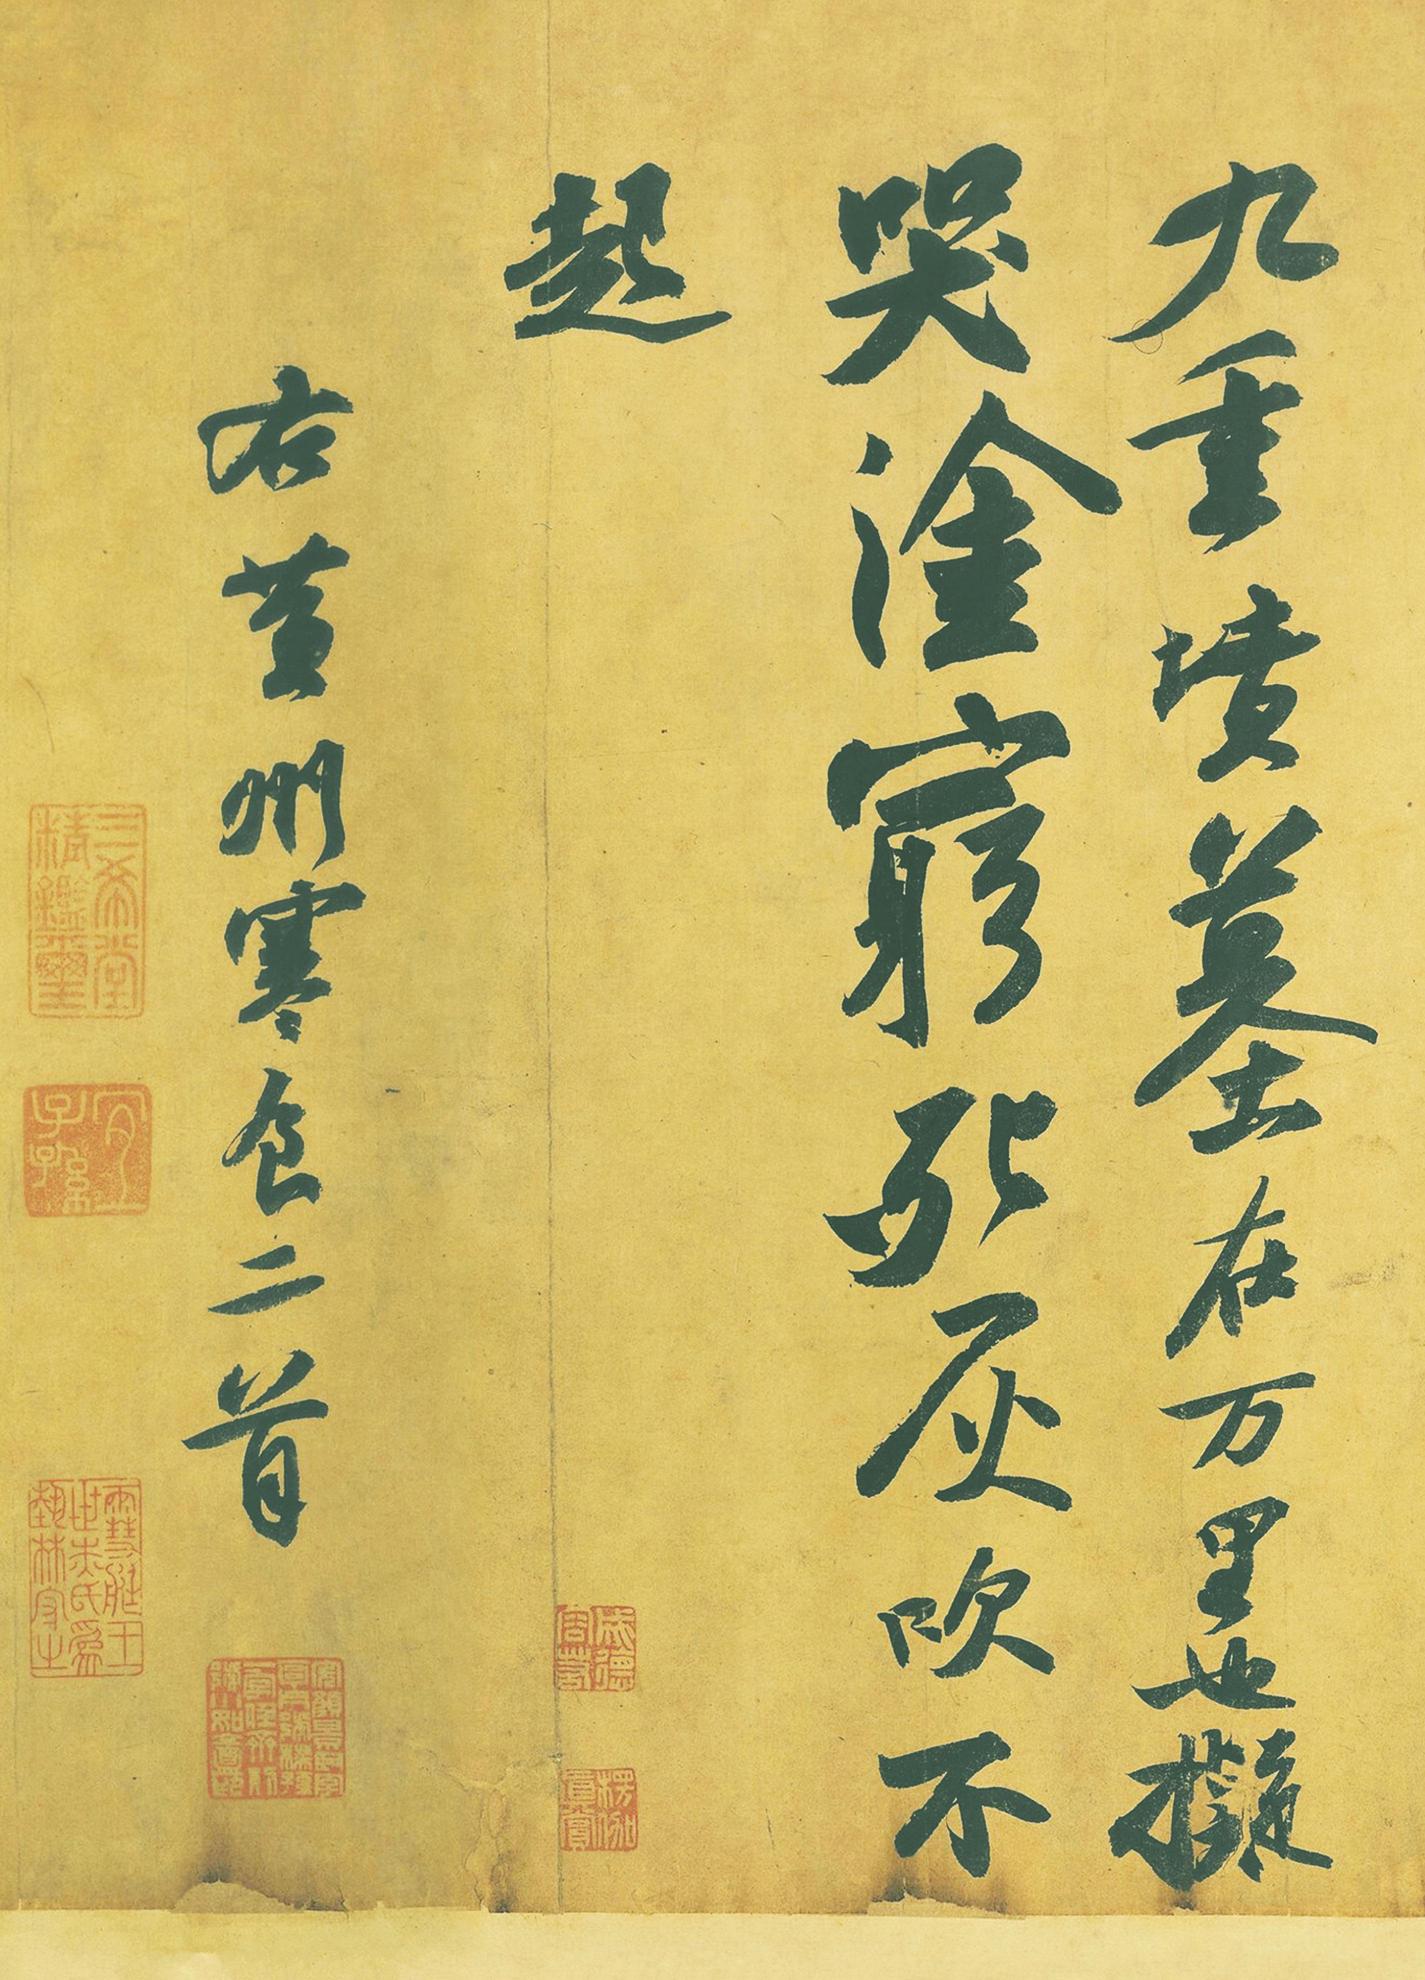 九重墳墓在万里也擬
哭塗窮死灰吹不
起
成德
容若
楞伽
真賞
右黄州寒食二首
三希堂
精鑑璽
宜
子孫